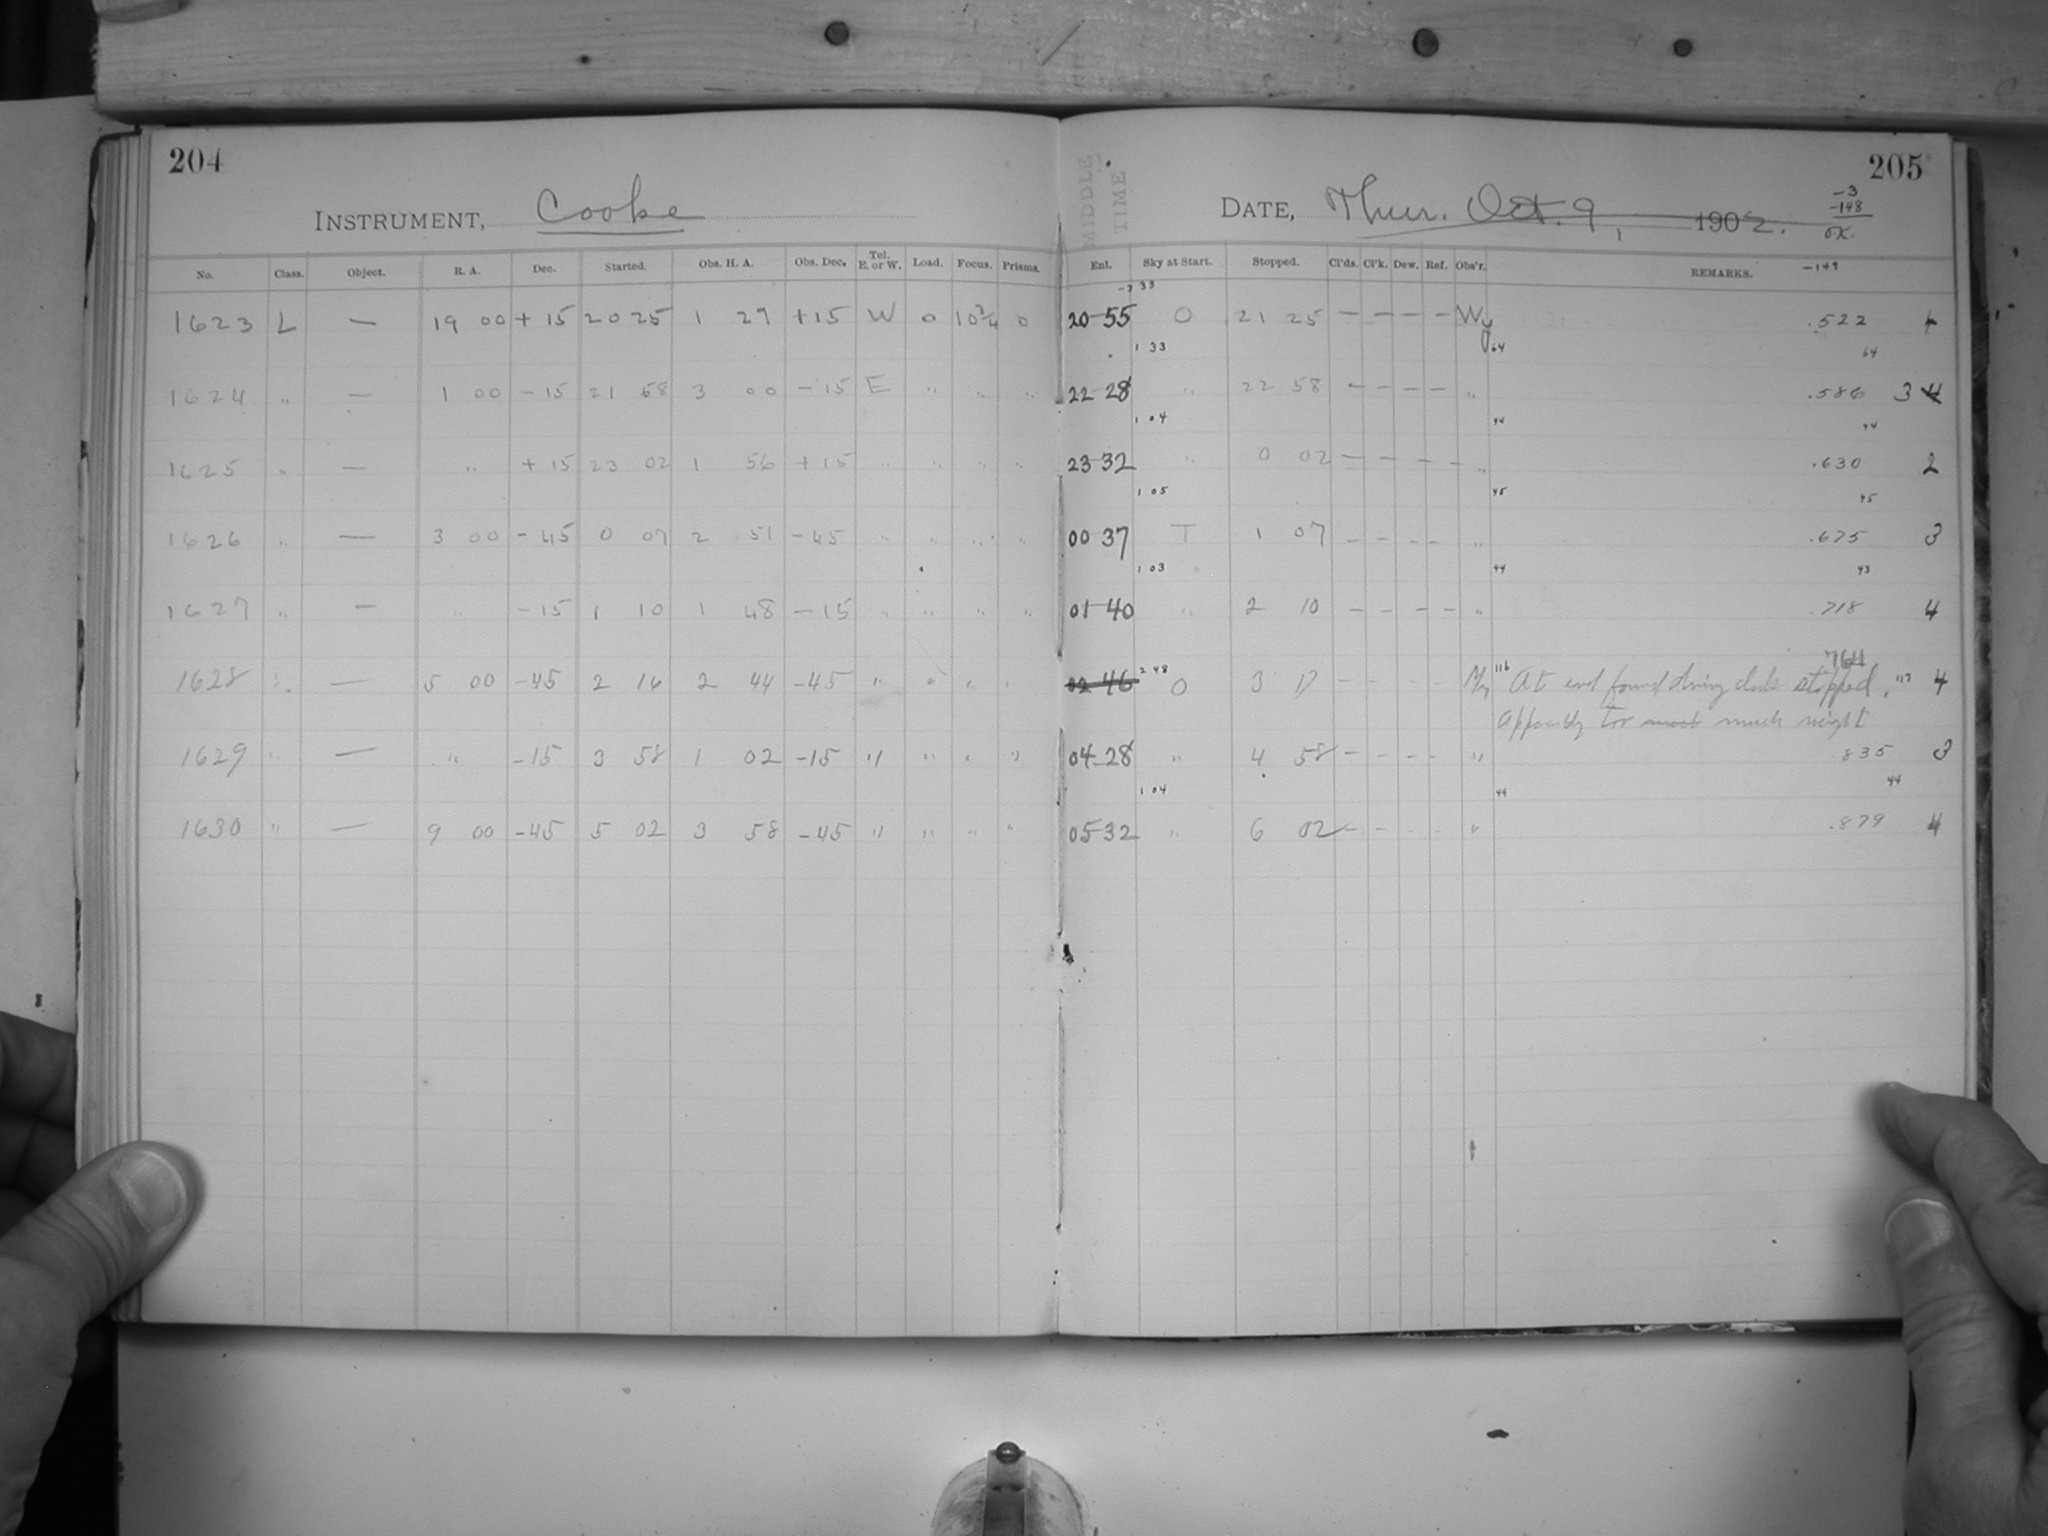 204
INSTRUMENT, Cooke
No. Class. Object. R. A. Dec. Started. Obs. H. A. Obs. Dec. Tel. E. or W. Load. Focus. Prisms.
1623 L — 19 00 + 15 20 25 1 27 +15 W 0 10 3/4 0
1624 " — 1 00 - 15 21 58 3 00 - 15 E " " "
1625 " — " + 15 23 02 1 56 + 15 " " " "
1626 " — 3 00 - 45 0 07 2 51 - 45 " " " "
1627 " — " - 15 1 10 1 48 - 15 " " " "
1628 " — 5 00 -45 2 16 2 44 -45 " " " "
1629 " — " -15 3 58 1 02 -15 " " " "
1630 " — 9 00 -45 5 02 3 58 -45 " " " "
205
MIDDLE TIME
DATE, Thur. Oct. 9, 1902.
-3
-148
OK.
-149
Enl. Sky at Start. Stopped. Cl'ds. Cl'k. Dew. Ref. Obs'r. REMARKS.
33
20 55 O 21 25 — — — — Wy .522 4
1 33 64 64
22 28 " 22 58 — — — — " .586 3 4
1 04 44 44
23 32 " 0 02 — — — — " .630 2
1 05 45 45
00 37 T 1 07 — — — — " .675 3
1 03 44 43
01 40 " 2 10 — — — — " .718 4
764
02 46 2 48 O 3 17 — — — — 116 At end found driving clock stopped, 117 4
apparently too much weight
04 28 " 4 58 — — — — " .835 3
1 04 44 44
05 32 " 6 02 — — — — " .879 4